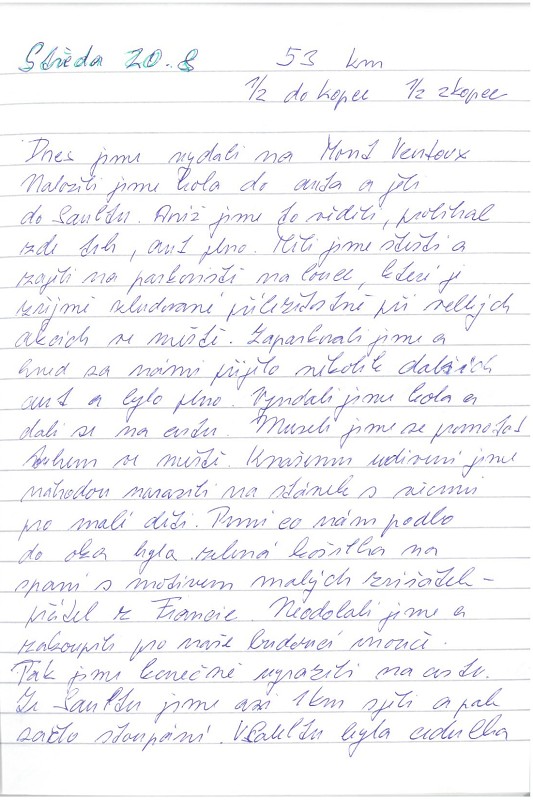 Středa 20.8 53 km
1/2 do kopce 1/2 zkopce
Dnes jsme vydali na Mont Ventoux
Naložili jsme kola do auta a jeli
do Saultu. Aniž jsme to věděli, probíhal
zde trh, aut plno. Měli jsme štěstí a
zajeli na parkoviště na louce, které je
zřejmě zbudované příležitostně při velkých
akcích ve městě. Zaparkovali jsme a
hned za námi přijelo několik dalších
aut a bylo plno. Vyndali jsme kola a
dali se na cestu. Museli jsme se promotat
trhem ve městě. K našemu udivení jsme
náhodou narazili na stánek s věcmi
pro malé děti. První co nám padlo
do oka byla zelená košilka na
spaní s motivem malých zvířátek -
přátel z Francie. Neodolali jsme a
zakoupili pro naše budoucí vnouče.
Tak jsme konečně vyrazili na cestu.
Ze Saultu jsme asi 1km sjeli a pak
začlo stoupání. V Saultu byla cedulka